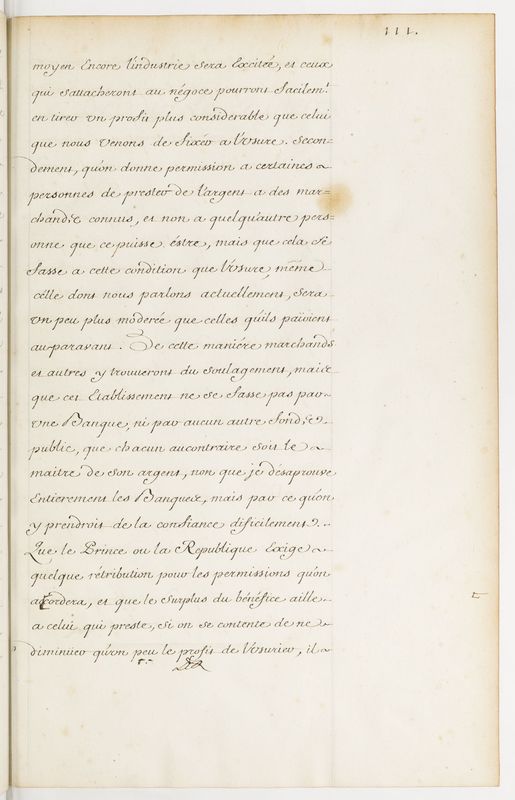 111.
moyen Encore l'industrie sera Excitée, et ceux
qui s'attacheront au négoce pourront facilem.t
en tirer un profit plus considerable que celui
que nous venons de fixer a l'Usure. Secon-
dement, qu'on donne permission a certaines
personnes de prester de l'argent a des mar=
chands connus, et non a quelqu'autre pers=
onne que ce puisse éstre, mais que cela se
fasse a cette condition que l'Usure, même
célle dont nous parlons actuellement, sera
un peu plus moderée que celles qu'ils païoient
au-paravant. De cette maniére marchands
et autres y trouveront du soulagement, mais
que cet Etablissement ne se fasse pas par
une Banque, ni par aucun autre fonds
public, que chacun aucontraire soit le
maitre de son argent, non que je désaprouve
Entierement les Banques, mais par ce qu'on
y prendroit de la confiance dificilement.
Que le Prince ou la Republique Exige
quelque rétribution pour les permissions qu'on
accordera, et que le surplus du bénéfice aille
a celui qui preste, si on se contente de ne
diminuer qu'un peu le profit de l'Usurier, il